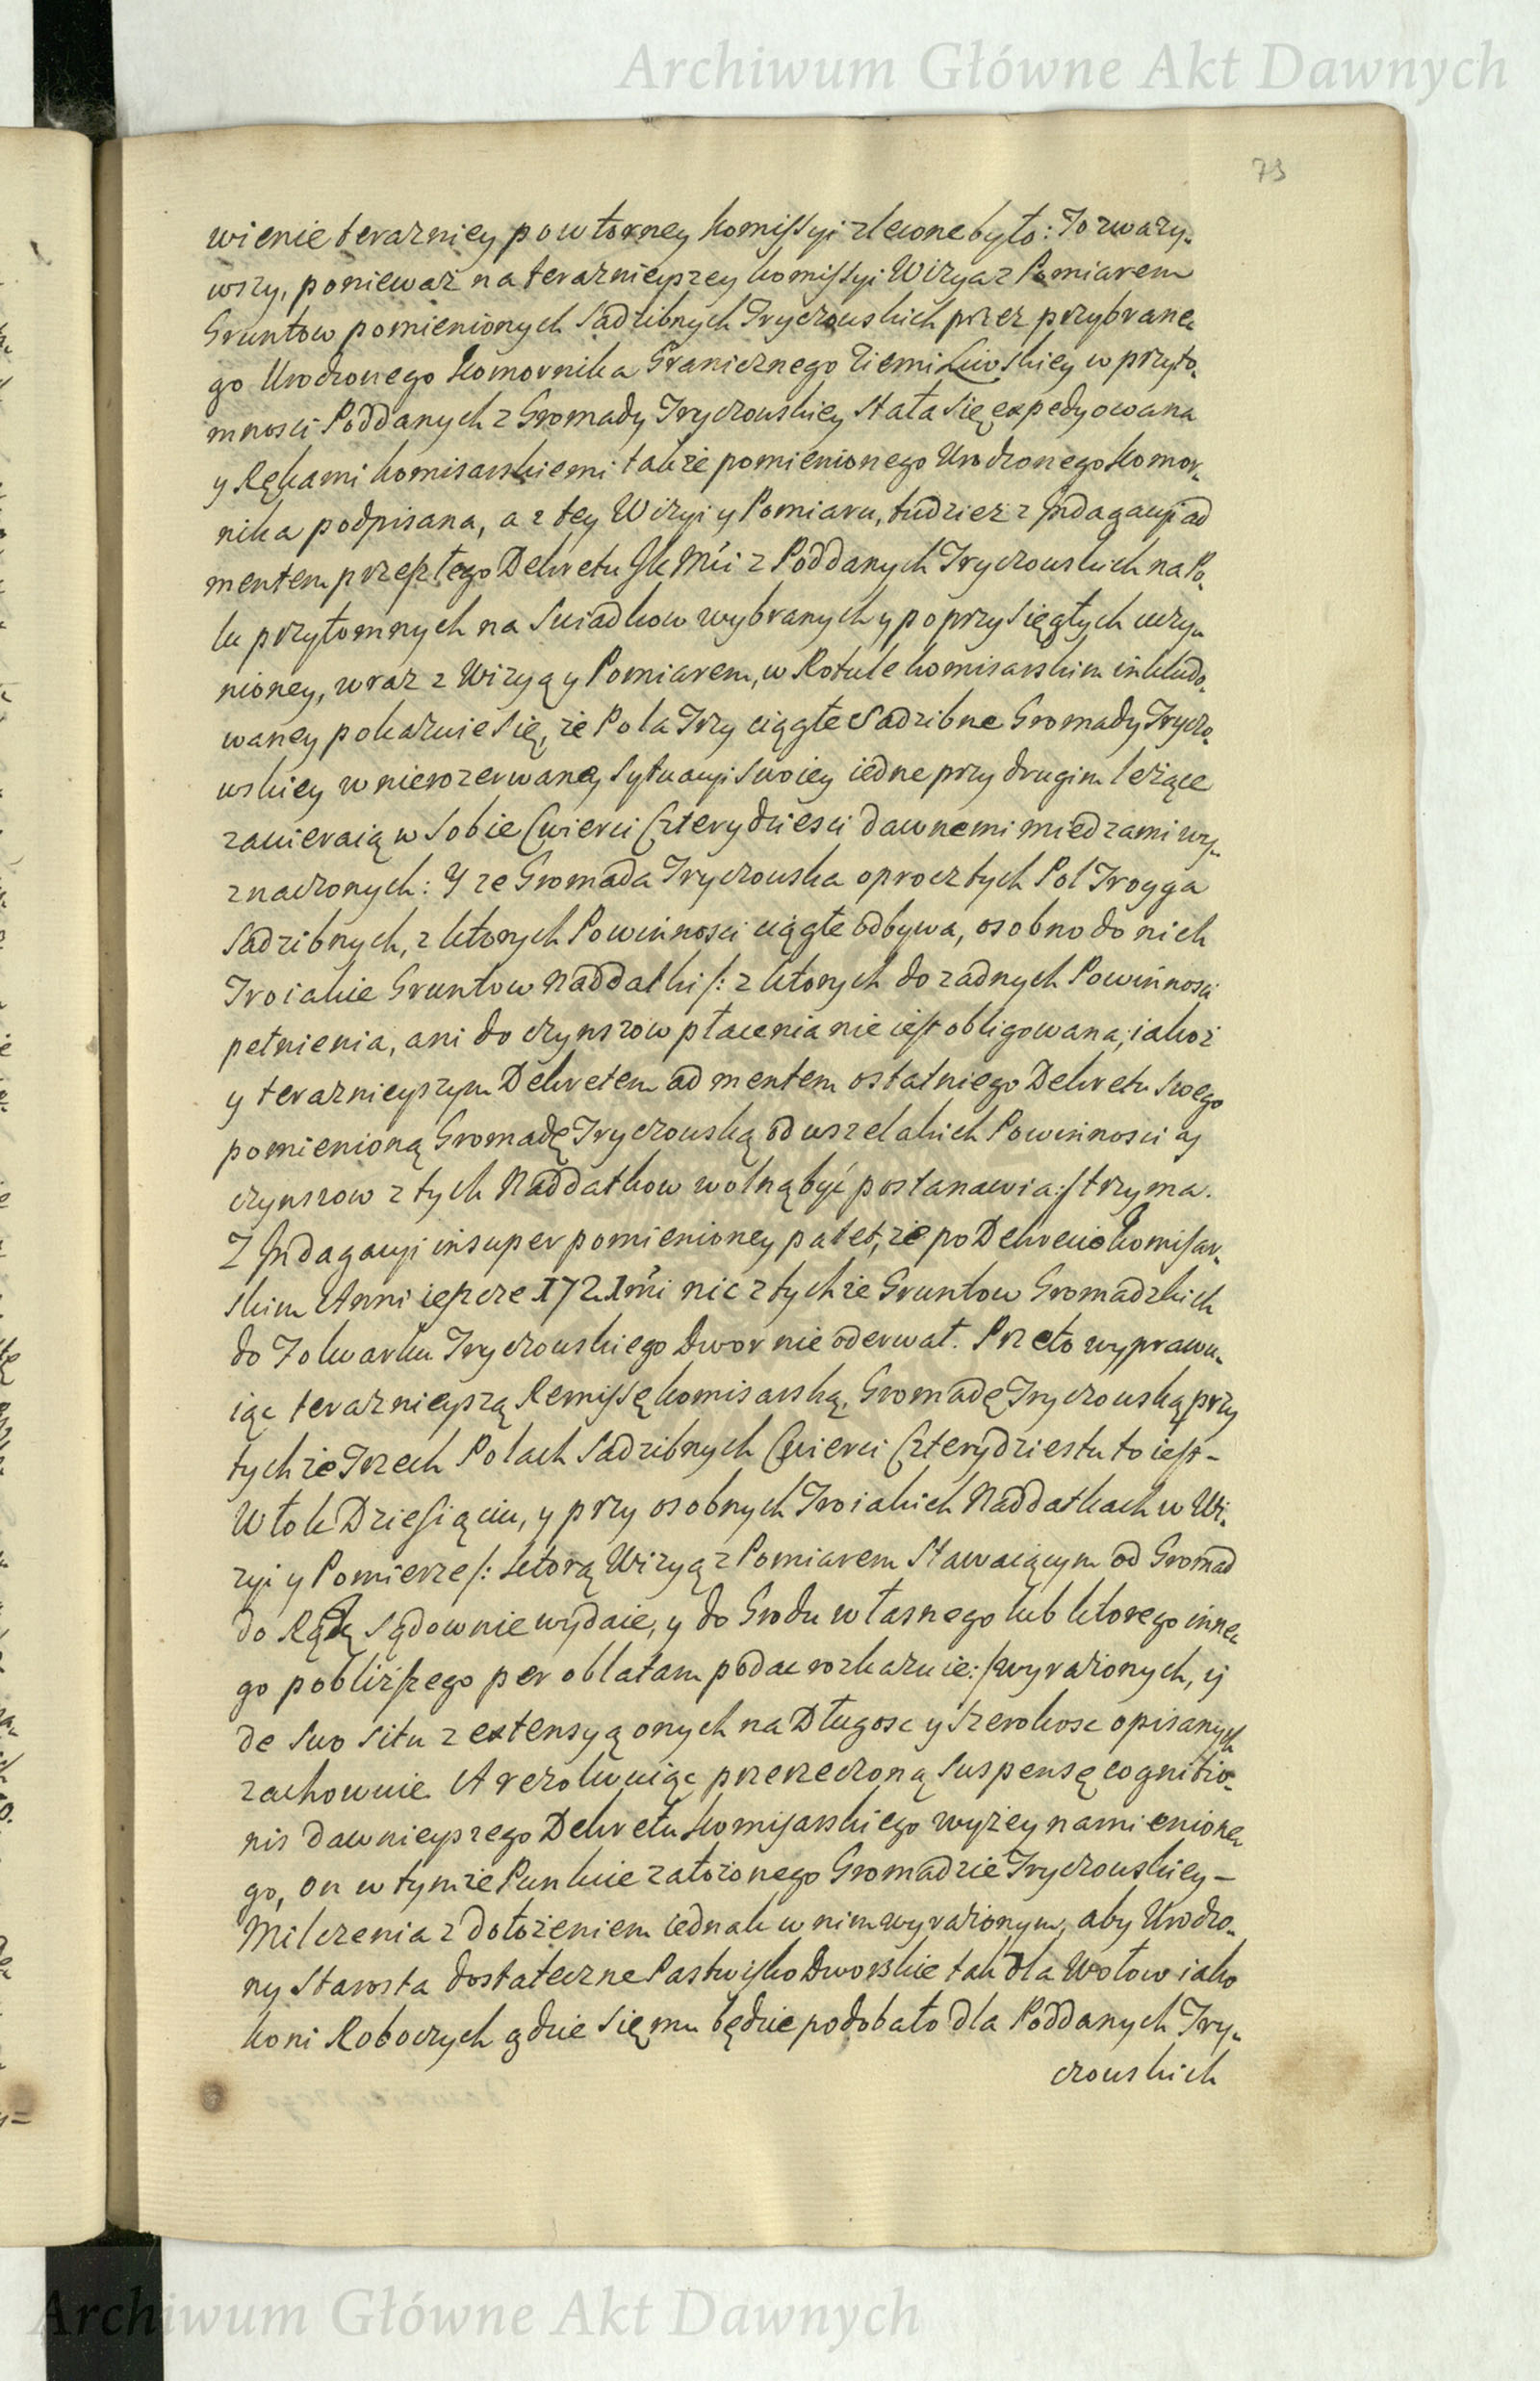 Archiwum Główne Akt Dawnych
73
wienie terazniey powtorney kommissyi zlecone było: To zwazy-
wszy, poniewaz na terazniejszey kommissyi Wizya z Pomiarem
Gruntow pomienionych Sadzibnych Tryczowskich przez przybrane-
go Urodzonego Komornika Granicznego Ziemi Liwskiey w przyto-
mnosci Poddanych z Gromady Tryczowskiey stała się expedyowana
y Rękami komisarskiemi także pomienionego Urodzonego Komor-
nika podpisana, a z tey Wizyi y Pomiaru, tudziesz z Indagacyi ad
mentem przeszłego Dekretu JK Mći z Poddanych Tryczowskich na Po-
lu przytomnych na Swiadkow wybranych y poprzysięgłych uczy-
nioney, wraz z Wizyą y Pomiarem, w Rotule komisarskim inkludo-
waney pokazuie się, że Pola Trzy ciągłe Sadzibne Gromady Tryczo-
wskiey w nierozerwaney sytuacyi swoiey iedne przy drugim leżące
zawieraią w sobie Cwierci Czterydziesci dawnemi miedzami wy-
znaczonych: Y ze Gromada Tryczowska oprocz tych Pol Troyga
Sadzibnych, z ktorych Powinnosci ciągłe odbywa, osobno do nich
Troiakie Gruntow Naddatki /: z ktorych do zadnych Powinnosci
pełnienia, ani do czynszow płacenia nie iest obligowana, iakoż
y terazniejszym Dekretem ad mentem ostatniego Dekretu swego
pomienioną Gromadę Tryczowską od wszelakich Powinnosci y
czynszow z tych Naddatkow wolną być postanawia :/ trzyma.
Z Indagacyi insuper pomienioney patet, że po Dekrecie komisar-
skim Anni ieszcze 1721mi nic z tychże Gruntow Gromadzkich
do Folwarku Tryczowskiego Dwor nie oderwał. Przeto wyprawu-
iąc terazniejszą Remissę komisarską, Gromadę Tryczowską przy
tychże Trzech Polach Sadzibnych Cwierci Czterydziestu to iest -
Włok Dziesiąciu, y przy osobnych Troiakich Naddatkach w Wi-
zyi y Pomierze /: ktorą Wizyą z Pomiarem stawaiącym od Gromad
do Rąk sądownie wydaie, y do Grodu własnego lub ktorego inne-
go pobliższego per oblatam podac rozkazuie :/ wyrażonych, y
de suo situ z extensyą onych na Długosc y Szerokosc opisanych
zachowuie. A rezolwuiąc przerzeczoną suspensę cognitio-
nis dawnieyszego Dekretu komisarskiego wyżey namienione-
go, on w tymże Punkcie załozonego Gromadzie Tryczowskiey -
Milczenia z dołożeniem iednak w nim wyrażonym, aby Urodzo-
ny Starosta dostateczne Pastwisko Dworskie tak dla Wołow iako
koni Roboczych gdzie się mu będzie podobało dla Poddanych Try-
czowskich
Archiwum Główne Akt Dawnych